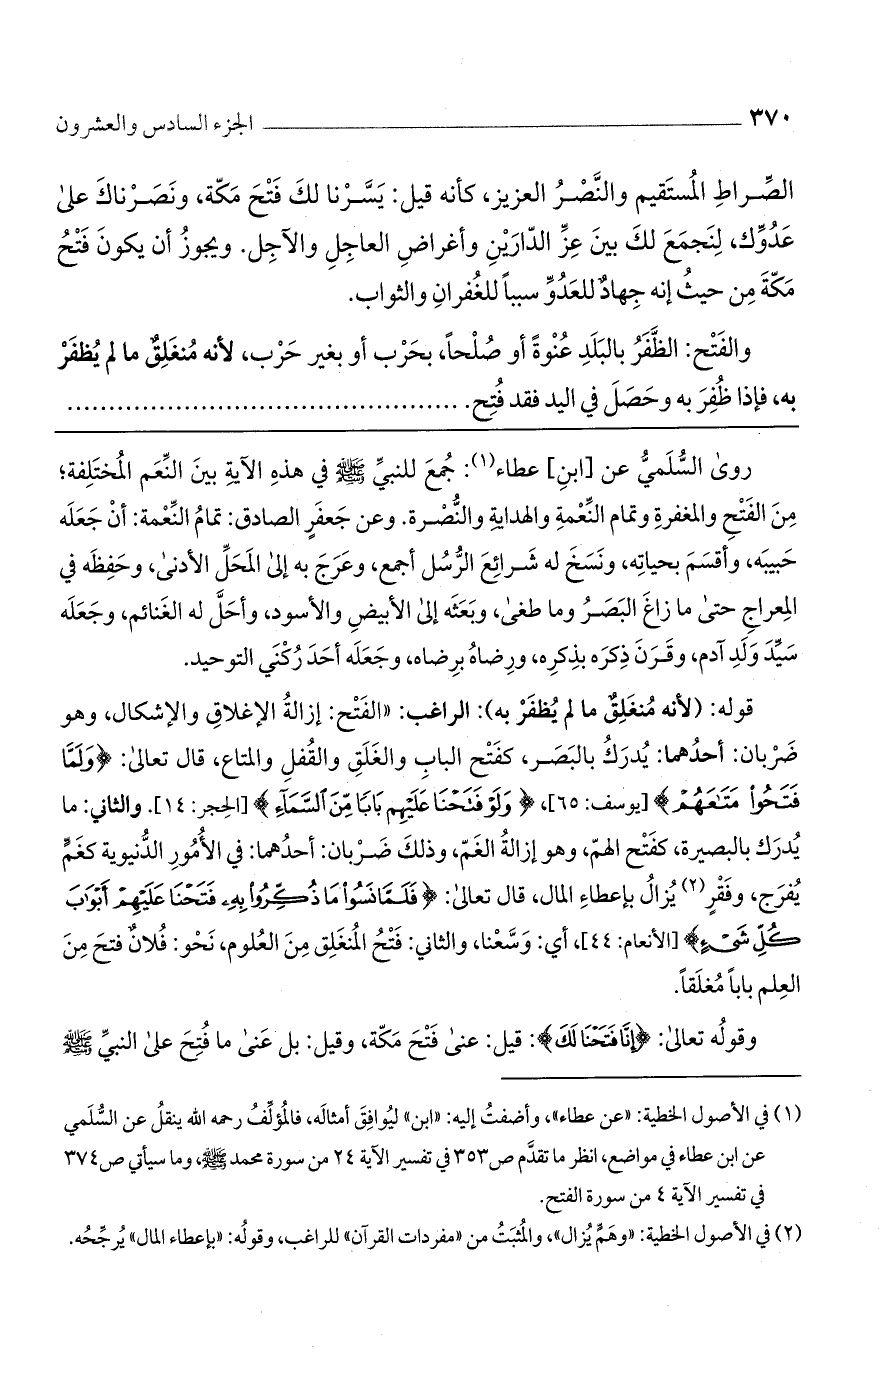 ٣٧٠ ـــــــــــــــــــــــــــــــــــــــــــــــــ الجزء السادس والعشرون
الصِّراطِ المُستَقيم والنَّصْرُ العزيز، كأنه قيل: يَسَّرْنا لكَ فَتْحَ مَكّة، ونَصَرْناكَ علىٰ
عَدُوِّك، لِنَجمَعَ لكَ بينَ عِزِّ الدّارَيْنِ وأغراضِ العاجِلِ والآجِل. ويجوزُ أن يكونَ فَتْحُ
مَكّةَ مِن حيثُ إنه جِهادٌ للعَدُوِّ سبباً للغُفرانِ والثواب.
والفَتْح: الظَّفَرُ بالبَلَدِ عُنْوةً أو صُلْحاً، بحَرْب أو بغير حَرْب، لأنه مُنغَلِقٌ ما لم يُظفَرْ
به، فإذا ظُفِرَ به وحَصَلَ في اليد فقد فُتِح. ................................................
روىٰ السُّلَميُّ عن [ابنِ] عطاء(١): جُمعَ للنبيِّ ﷺ في هذهِ الآيةِ بينَ النِّعَم المُختَلِفة؛
مِنَ الفَتْحِ والمغفرةِ وتمام النِّعْمةِ والهدايةِ والنُّصْرة. وعن جَعفَرٍ الصادق: تمامُ النِّعْمة: أنْ جَعَلَه
حَبيبَه، وأقسَمَ بحياتِه، ونَسَخَ له شَرائِعَ الرُّسُل أجمع، وعَرَجَ به إلىٰ المَحَلِّ الأدنىٰ، وحَفِظَه في
المِعراجِ حتىٰ ما زاغَ البَصَرُ وما طغىٰ، وبَعَثَه إلىٰ الأبيضِ والأسود، وأحَلَّ له الغَنائم، وجَعَلَه
سَيِّدَ وَلَدِ آدم، وقَرَنَ ذِكرَه بذِكرِه، ورِضاهُ برِضاه، وجَعَلَه أحَدَ رُكْنَي التوحيد.
قوله: (لأنه مُنغَلِقٌ ما لم يُظفَرْ به): الراغب: «الفَتْح: إزالةُ الإغلاقِ والإشكال، وهو
ضَرْبان: أحدُهما: يُدرَكُ بالبَصَر، كفَتْح البابِ والغَلَقِ والقُفلِ والمتاع، قال تعالىٰ: ﴿وَلَمَّا
فَتَحُوا۟ مَتَٰعَهُمْ﴾ [يوسف: ٦٥]، ﴿وَلَوْ فَتَحْنَا عَلَيْهِم بَابًا مِّنَ ٱلسَّمَآءِ﴾ [الحجر: ١٤]. والثاني: ما
يُدرَكُ بالبصيرة، كفَتْح الهمّ، وهو إزالةُ الغَمّ، وذلكَ ضَرْبان: أحدُهما: في الأُمُورِ الدُّنيوية كغَمٍّ
يُفرَج، وفَقْرٍ(٢) يُزالُ بإعطاءِ المال، قال تعالىٰ: ﴿فَلَمَّا نَسُوا۟ مَا ذُكِّرُوا۟ بِهِۦ فَتَحْنَا عَلَيْهِمْ أَبْوَابَ
كُلِّ شَىْءٍ﴾ [الأنعام: ٤٤]، أي: وَسَّعْنا، والثاني: فَتْحُ المُنغَلِق مِنَ العُلوم، نَحْو: فُلانٌ فتحَ مِنَ
العِلم باباً مُغلَقاً.
وقولُه تعالىٰ: ﴿إِنَّا فَتَحْنَا لَكَ﴾: قيل: عنىٰ فَتْحَ مَكّة، وقيل: بل عَنىٰ ما فُتِحَ علىٰ النبيِّ ﷺ
(١) في الأصول الخطية: «عن عطاء»، وأضفتُ إليه: «ابن» ليُوافِقَ أمثالَه، فالمُؤلِّفُ رحمه الله ينقلُ عن السُّلَمي
عن ابن عطاء في مواضع، انظر ما تقدَّم ص٣٥٣ في تفسير الآية ٢٤ من سورة محمد ﷺ، وما سيأتي ص٣٧٤
في تفسير الآية ٤ من سورة الفتح.
(٢) في الأصول الخطية: «وهَمٌّ يُزال»، والمُثبَتُ من «مفردات القرآن» للراغب، وقولُه: «بإعطاء المال» يُرجِّحُه.